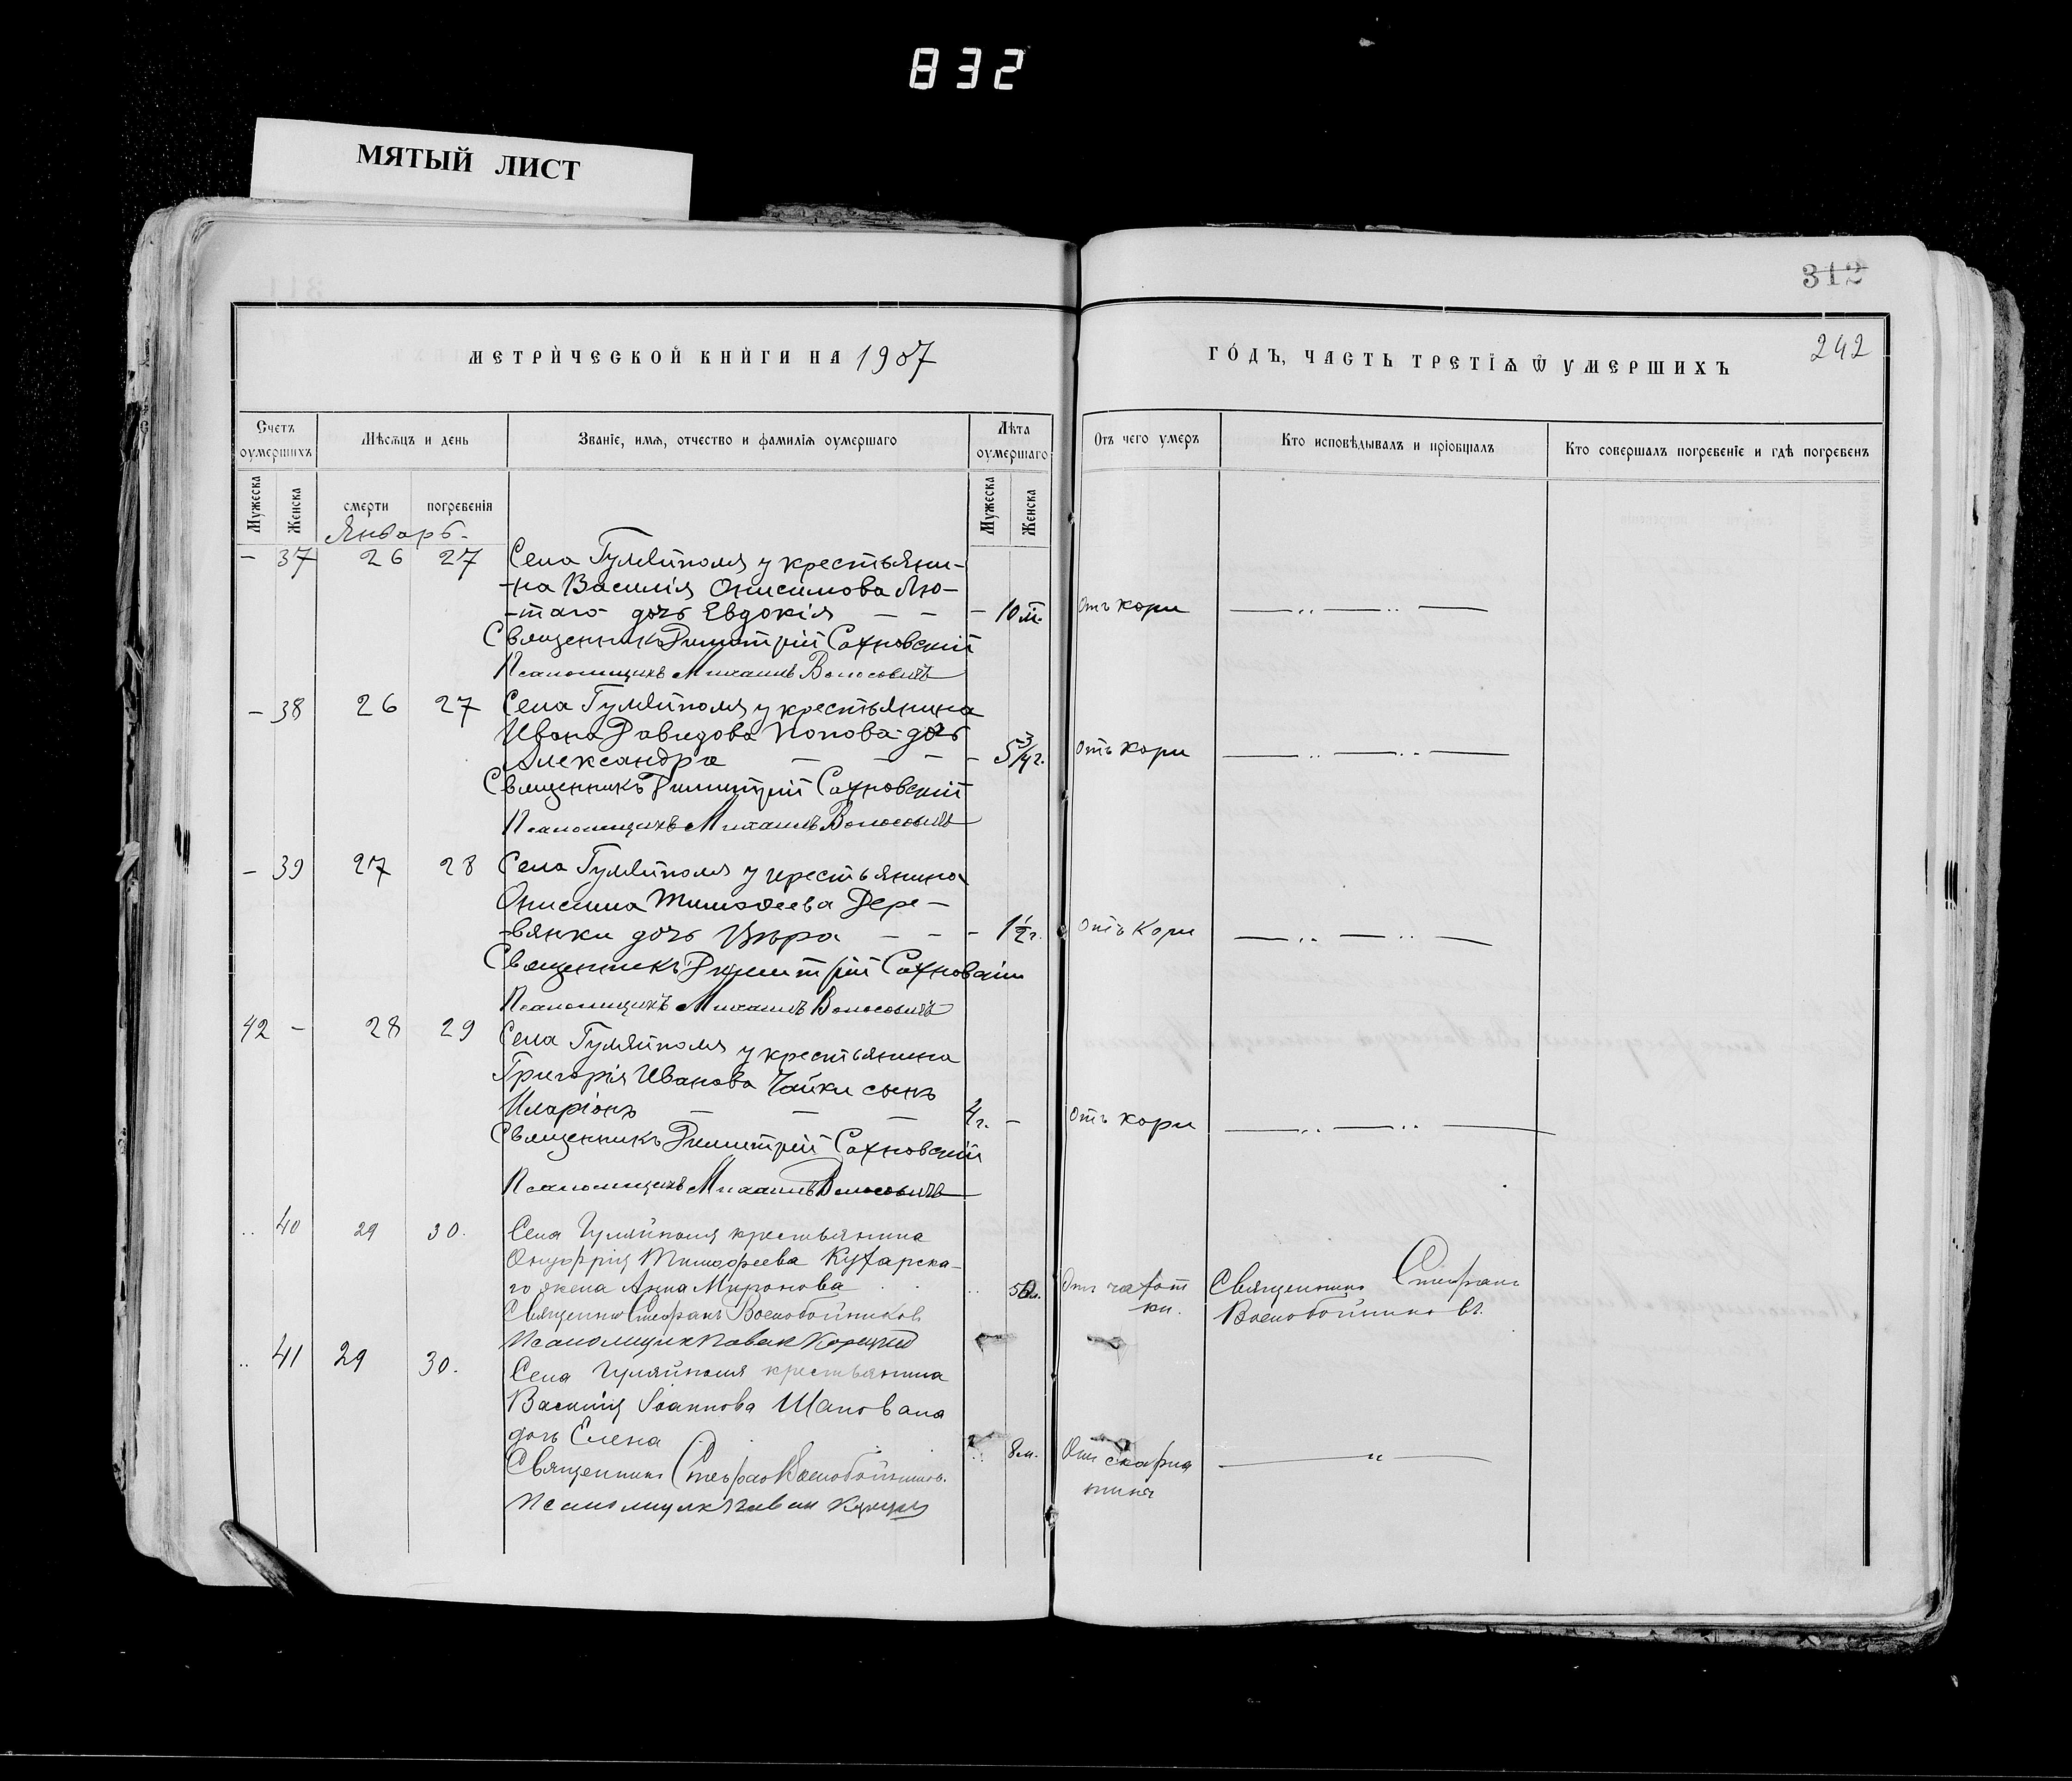 832
МЯТЫЙ ЛИСТ
312
МЕТРИЧЕСКОЙ КНИГИ НА 1907
ГОДЪ, ЧАСТЬ ТРЕТІѦ Ѿ УМЕРШИХЪ
242
Счетъ оумершихъ
Мѣсѧцъ и день
Званіе, имѧ, отчество и фамиліѧ оумершаго
Лѣта оумершаго
Отъ чего умеръ
Кто исповѣдывалъ и пріобщалъ
Кто совершалъ погребеніе и гдѣ погребенъ
Мужеска
Женска
смерти
погребенія
Мужеска
Женска
Январь.
– 37 26 27 Села Гуляйполя у крестьяни-
-на Василія Онисимова Лю-
-таго дочь Евдокія — — – 10 м. Отъ кори —— ,, —— ,, ——
Священникъ Димитрій Сахновскій
Псаломщикъ Михаилъ Волосовичъ
– 38 26 27 Села Гуляйполя у крестьянина
Ивана Давидова Попова дочь
Александра — — — – 5 3/4 г. отъ кори —— ,, —— ,, ——
Священникъ Димитрій Сахновскій
Псаломщикъ Михаилъ Волосовичъ
– 39 27 28 Села Гуляйполя у крестьянина
Онисима Тимофеева Дере-
-вянки дочь Вѣра — — – 1 1/2 г. отъ Кори —— ,, —— ,, ——
Священникъ Димитрій Сахновскій
Псаломщикъ Михаилъ Волосовичъ
42 – 28 29 Села Гуляйполя у крестьянина
Григорія Иванова Чайки сынъ
Иларіонъ — — — 4 г. – отъ кори —— ,, —— ,, ——
Священникъ Димитрій Сахновскій
Псаломщикъ Михаилъ Волосовичъ
.. 40 29 30. Села Гуляйполя крестьянина
Онуфрія Тимофеева Кухарска-
го жена Анна Миронова .. Отъ чахот Священникъ Стефанъ
ки. Военобойниковъ.
Священник Стефанъ Военобойников
Псаломщик Павел
.. 41 29 30. Села Гуляйполя крестьянина
Василія Іоаннова Шаповала
дочь Елена .. 8 м. Отъ скарла
тина —— „ ——
Священникъ Стефан Военобойников.
Псаломщик Павел